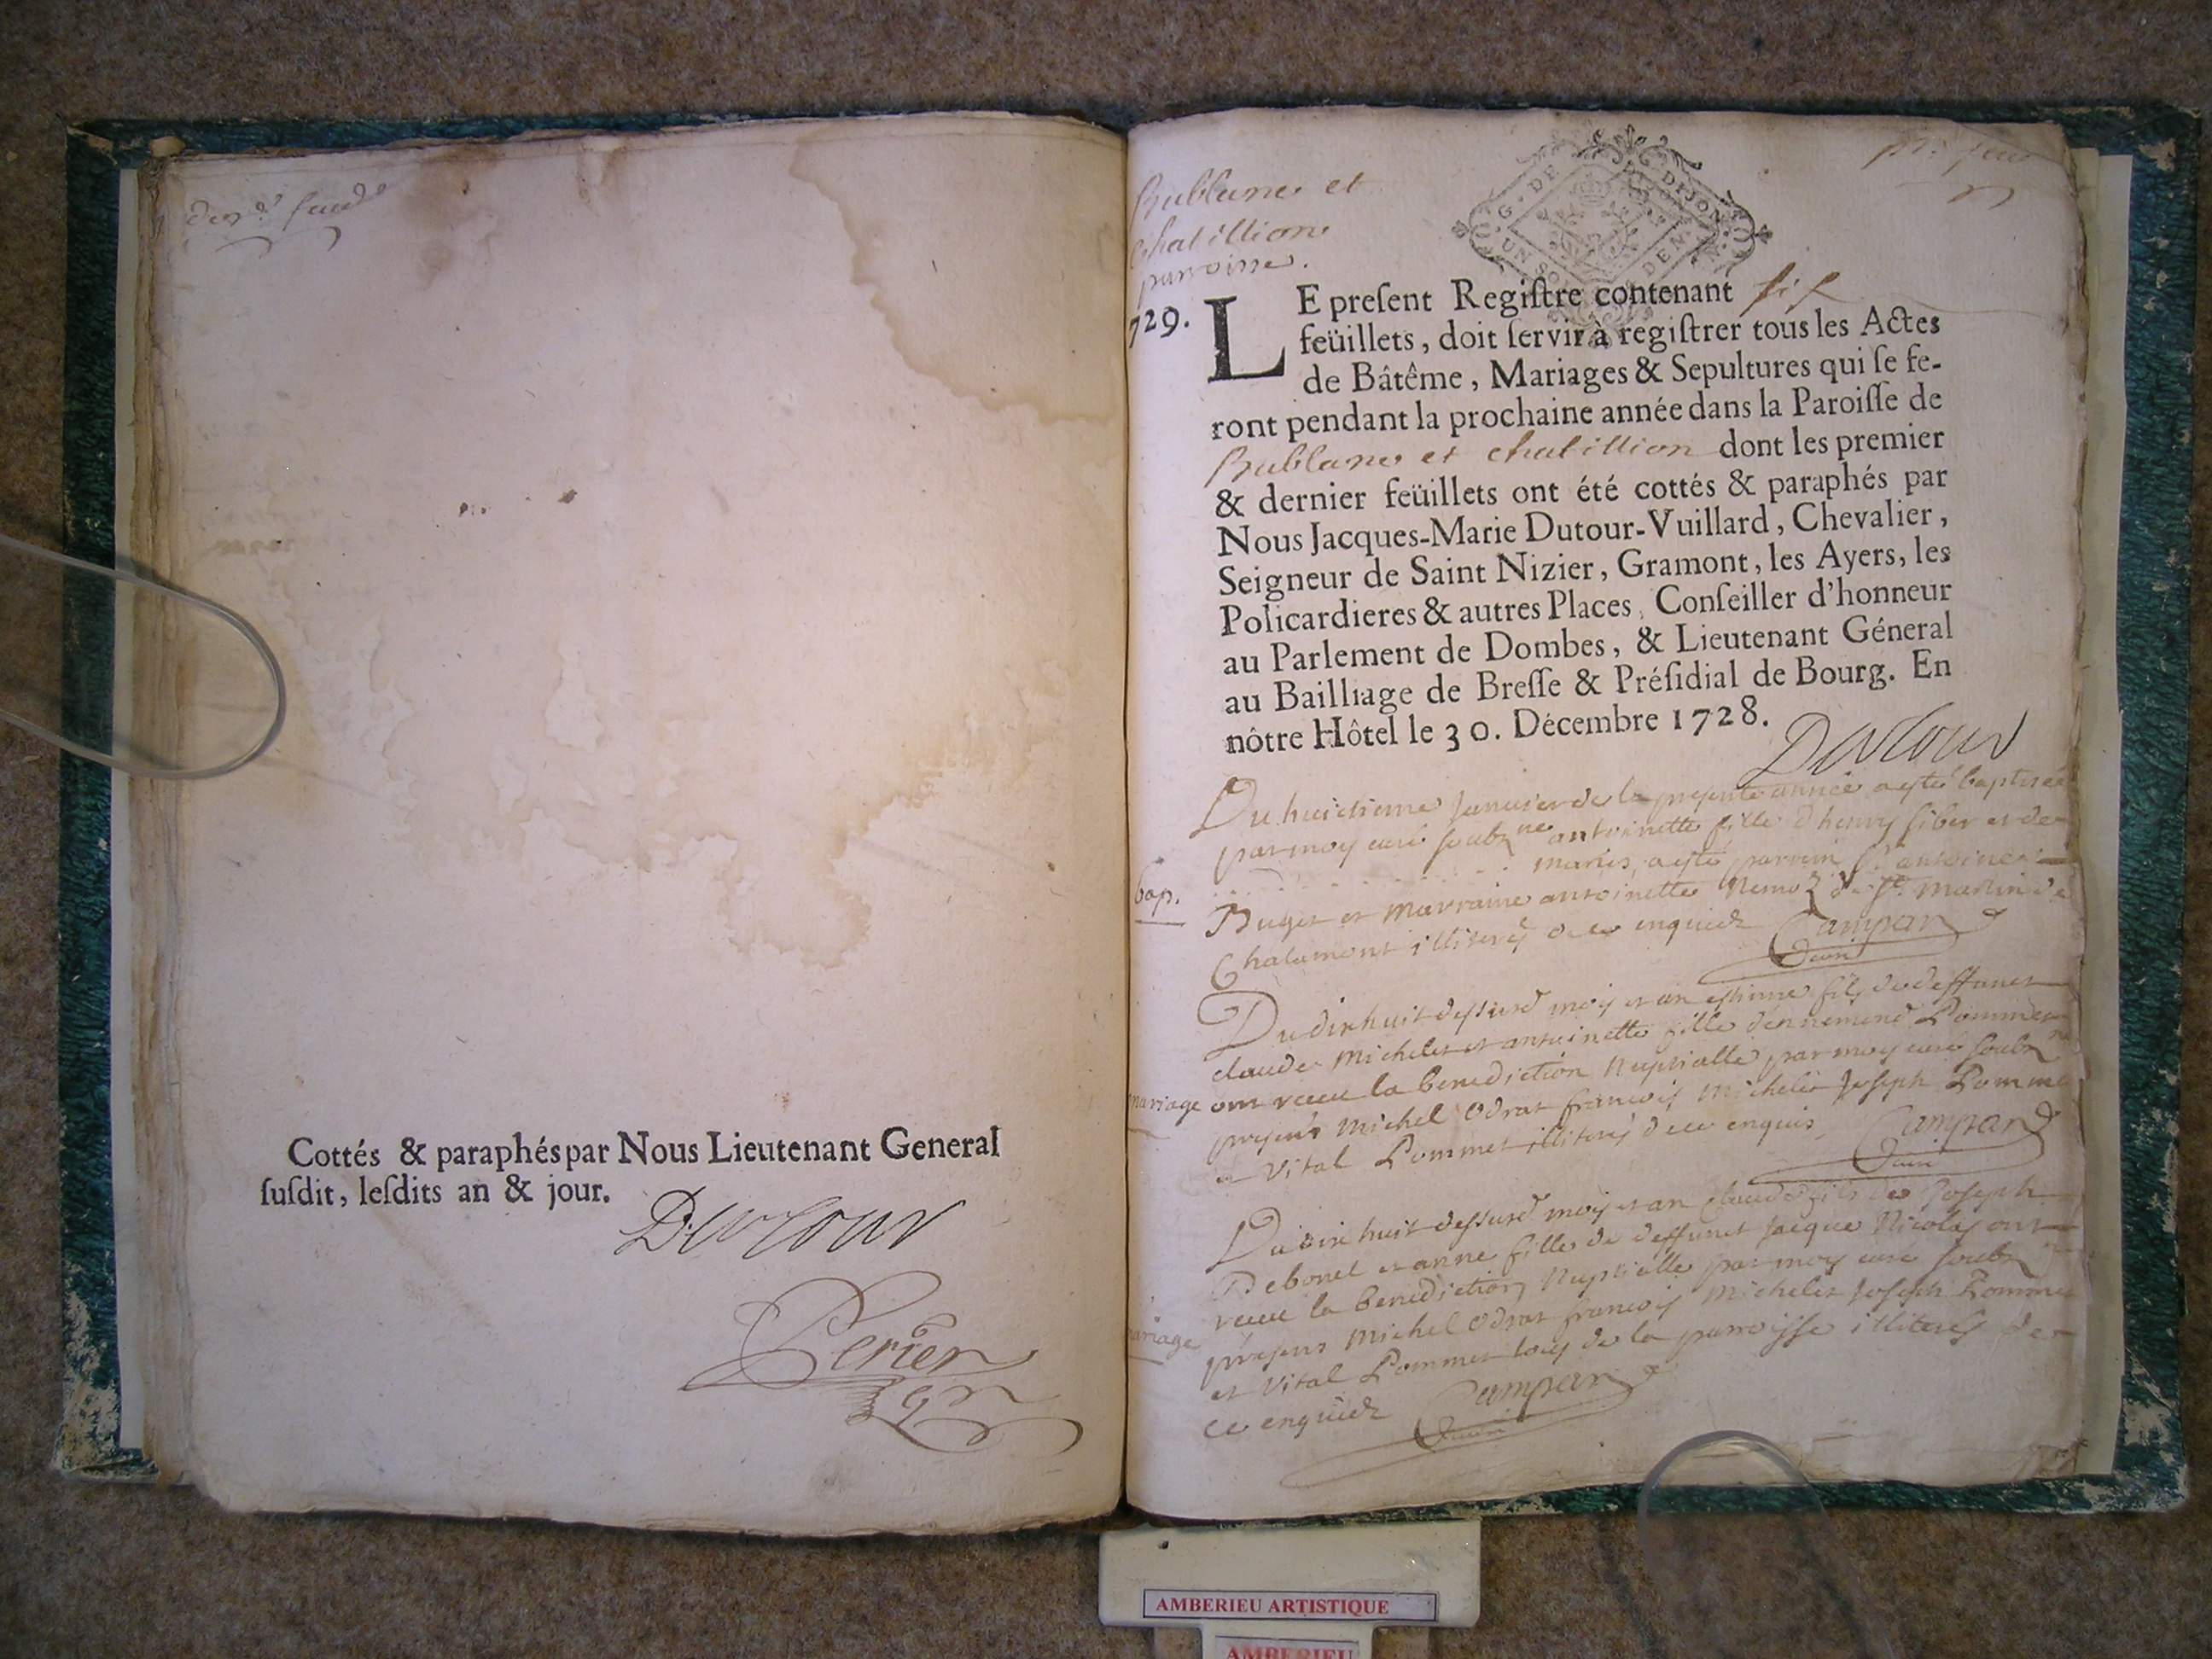 Cottés & paraphés par Nous Lieutenant General
suſdit, leſdits an & jour.
Dutour
Perier
Bublanne et
chatillion
parroisse.
G. DE DIJON
UN SO DEN
729.
LE preſent Regiſtre contenant six
feüillets, doit ſervir à regiſtrer tous les Actes
de Bâtême, Mariages & Sepultures qui ſe fe-
ront pendant la prochaine année dans la Paroiſſe de
Bublane et chatillion dont les premier
& dernier feüillets ont été cottés & paraphés par
Nous Jacques-Marie Dutour-Vuillard, Chevalier,
Seigneur de Saint Nizier, Gramont, les Ayers, les
Policardieres & autres Places, Conſeiller d'honneur
au Parlement de Dombes, & Lieutenant Géneral
au Bailliage de Breſſe & Préſidial de Bourg. En
nôtre Hôtel le 30. Décembre 1728.
Dutour
Du huictieme Janvier de la presente année a esté baptisée
par moy curé soubz ne antoinette fille d'henry siber et de
bap.
maries, a esté parrain antoine
Buget et marraine antoinette Nemoz de st. martin de
Chalamont illiterés de ce enquiez Campan
Curé
Du dix huit dessusd mois et an estienne fils de deffunct
claude Michelet et antoinette fille d'ennemond Pommet
mariage ont receu la benediction Nuptialle par moy curé soubz
presens Michel Odrat francois Michelet Joseph Pommet
et Vital Pommet illiterés de ce enquis Campan
Curé
Du dix huit dessusd mois et an claude fils de Joseph
Debonet et anne fille de deffunct Jacque Nicolas ont
receu la benediction Nuptialle par moy curé soubz
mariage
presens Michel Odrat francois Michelet Joseph Pommet
et Vital Pommet tous de la parroisse illiterés de
ce enquiez Campan
Curé
AMBERIEU ARTISTIQUE
AMBERIEU